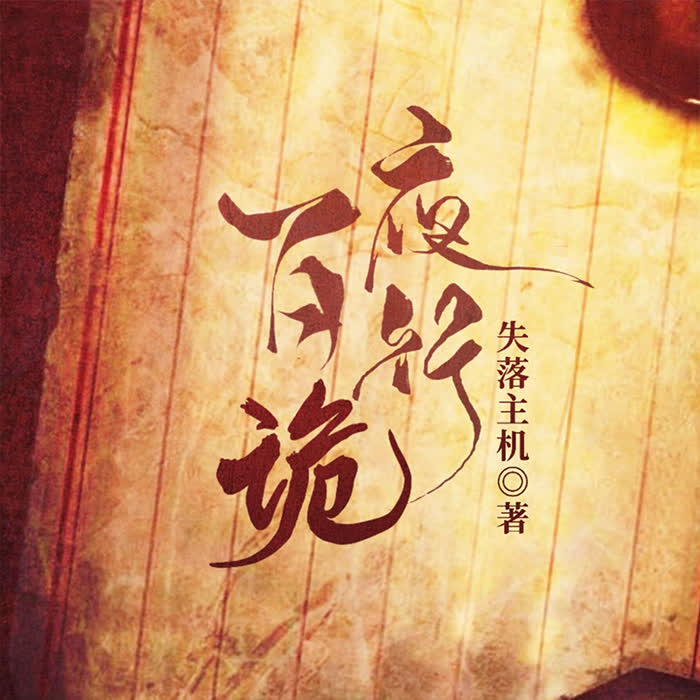 夜行
百诡
失落主机◎著